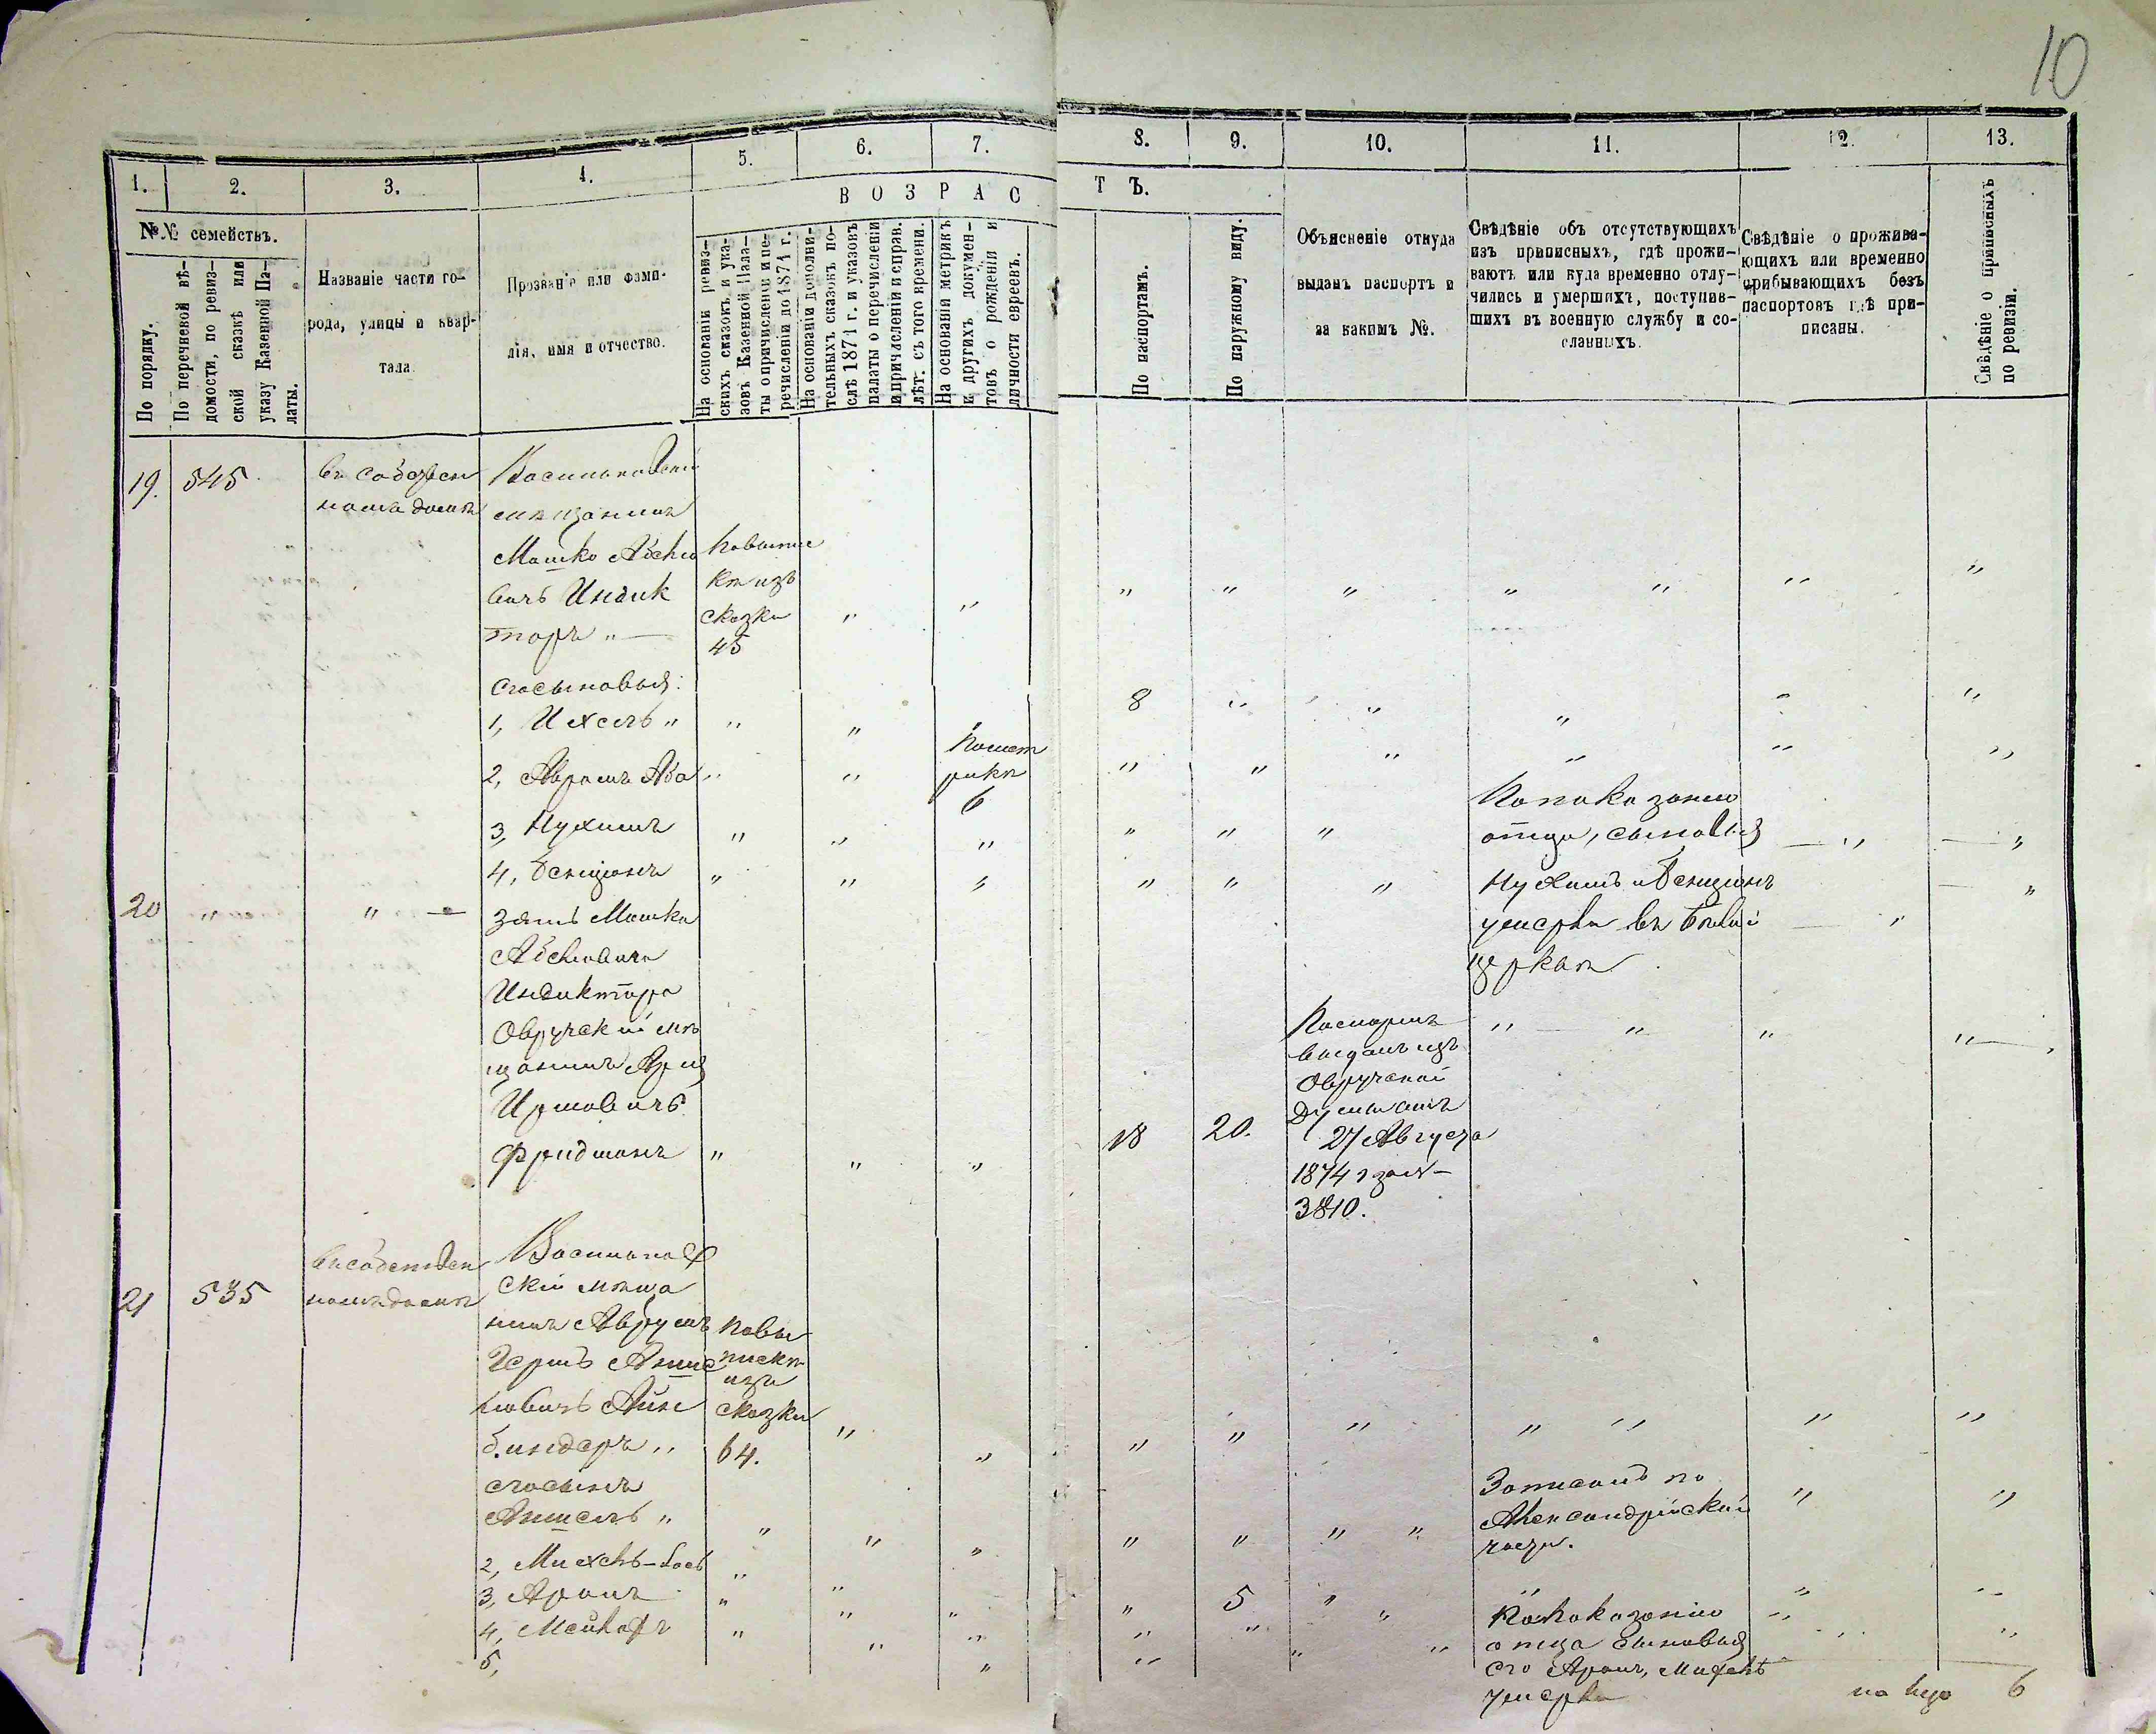 10
1. 2. 3. 4. 5. 6. 7. 8. 9. 10. 11. 12. 13.
№№ семействъ.
По порядку.
По перечневой вѣ-
домости, по ревиз-
ской сказкѣ или
указу Казенной Па-
латы.
Названіе части го-
рода, улицы и квар-
тала
Прозваніе или фами-
лія, имя и отчество.
ВОЗРАСТЪ.
На основаніи ревиз-
скихъ сказокъ и ука-
зовъ Казенной Пала-
ты о причисленіи и пе-
речисленіи до 1874 г.
На основаніи дополни-
тельныхъ сказокъ по-
слѣ 1874 г. и указовъ
палаты о перечисленіи
и причисленіи и справ.
лѣт. съ того времени.
На основаніи метрикъ
и другихъ докумен-
товъ о рожденіи и
личности евреевъ.
По паспортамъ.
По наружному виду.
Объясненіе откуда
выданъ паспортъ и
за какимъ №.
Свѣдѣніе объ отсутствующихъ
изъ приписныхъ, гдѣ прожи-
ваютъ или куда временно отлу-
чились и умершихъ, поступив-
шихъ въ военную службу и со-
сланныхъ.
Свѣдѣніе о прожива-
ющихъ или временно
прибывающихъ безъ
паспортовъ гдѣ при-
писаны.
Свѣдѣніе о приписныхъ
по ревизіи.
19. 545
въ собствен
номъ домѣ
Васильковскій
мѣщанинъ
Мошко Абелю
вичъ Индик
торъ "
По выпис
кѣ изъ
сказки
45
его сыновья:
1, Ихель " 8
2, Аврамъ Аба
По мет
рикѣ
6
3, Нухимъ
4, Бенціонъ
По показанію
отца, сыновья
Нухимъ и Бенціонъ
умерли въ Бѣлой
церкви
20 " "
зять Мошка
Абелювича
Индиктора
Овручскій мѣ
щанинъ Арія
Иршовичъ
Фридманъ " " " 18 20.
Паспортъ
выданъ изъ
Овручской
Думы отъ
27 Августа
1874 г за №
3810.
21 535
въ собствен
номъ домѣ
Васильков
скій мѣща
нинъ Аврумъ
Гершъ Аншe
лювичъ Айн
биндеръ "
По вы
пискѣ
изъ
сказки
64.
его сынъ
Аншель "
Записанъ по
Александрійской
части.
2, Михель-
3, Аронъ 5
4,
5,
По показанію
отца сыновья
его Аронъ, Михель
умерли
на лицо 6